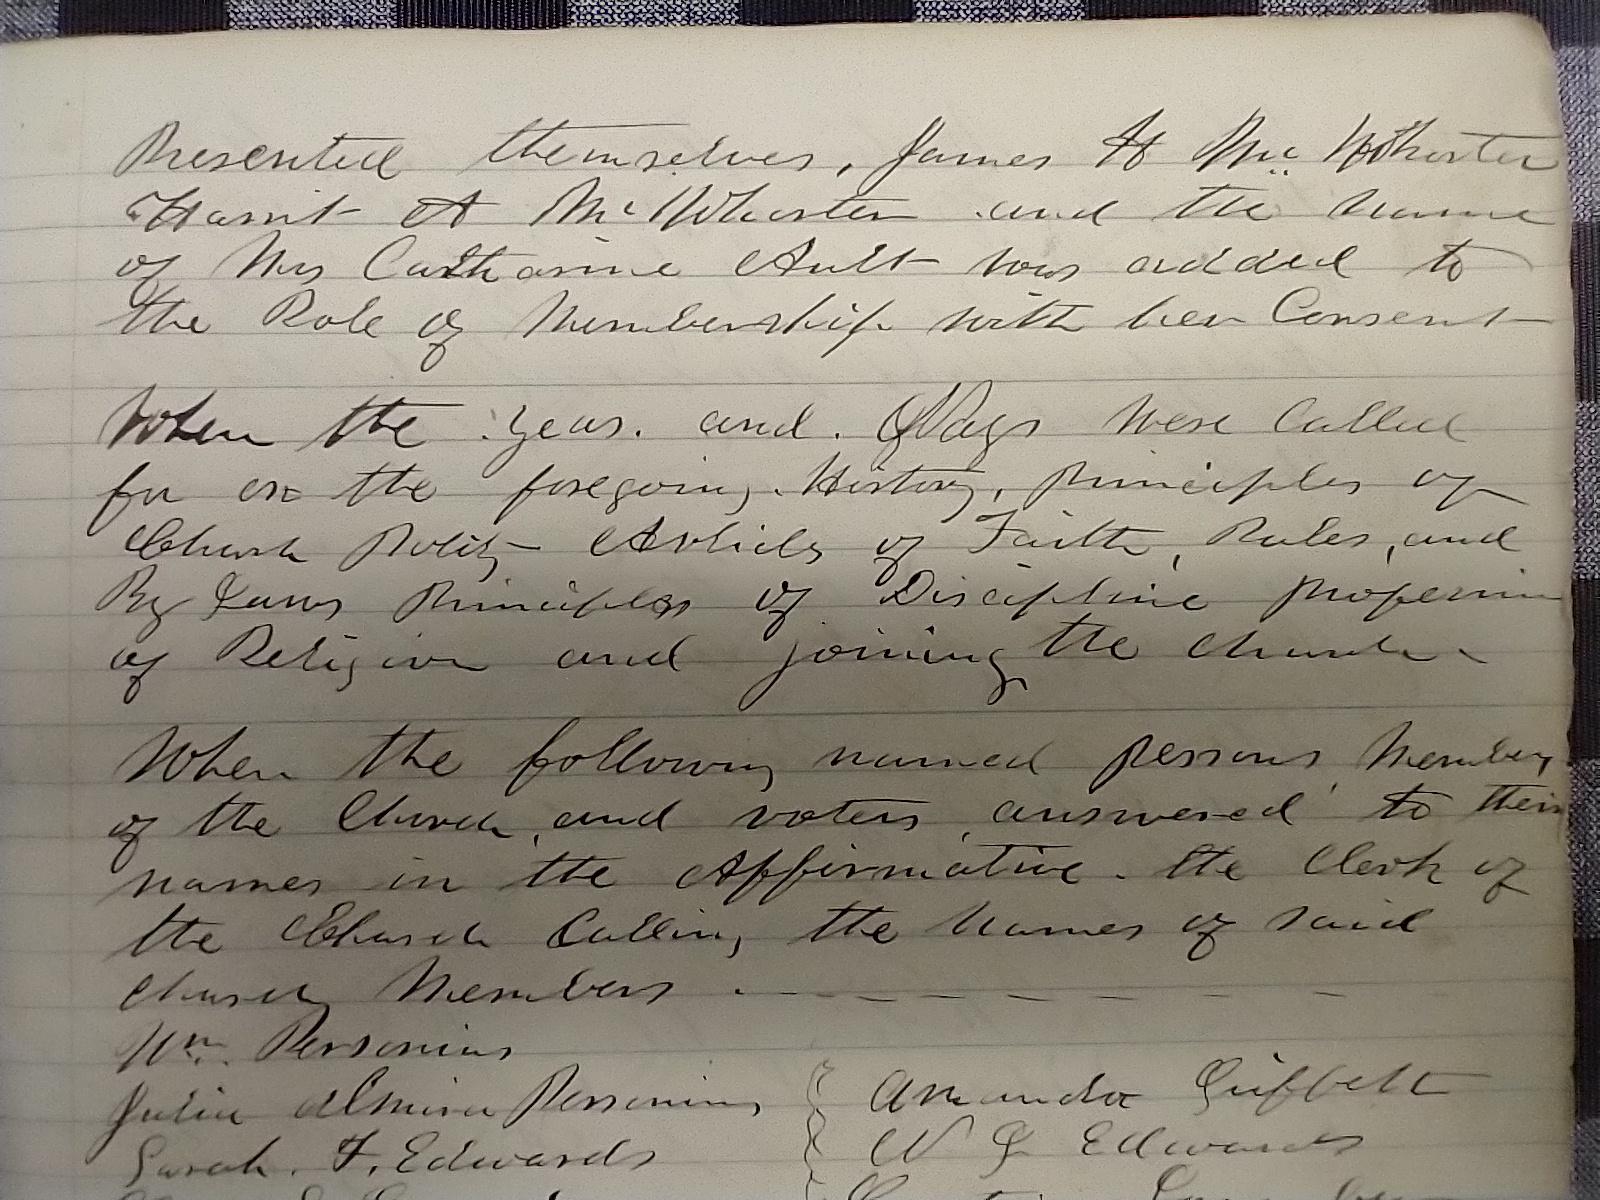 Presented themselves, James H McWhorter
Harrit A McWhorter and the name
of Mrs Catharine Ault was added to
the Role of Membership with her Consent
When the yeas. and. Nays were Called
for on the foregoing History, Principles of
Church Polity Articles of Faith, Rules, and
By Laws Principles of Discipline professing
of Religion and joining the church
When the following named persons Members
of the Church, and voters, answered to their
names in the Affirmative. the Clerk of
the Church Calling the Names of said
church Members
Wm. Personius
Julia Almira Personius
Sarah. F. Edwards
Amanda
Edwards